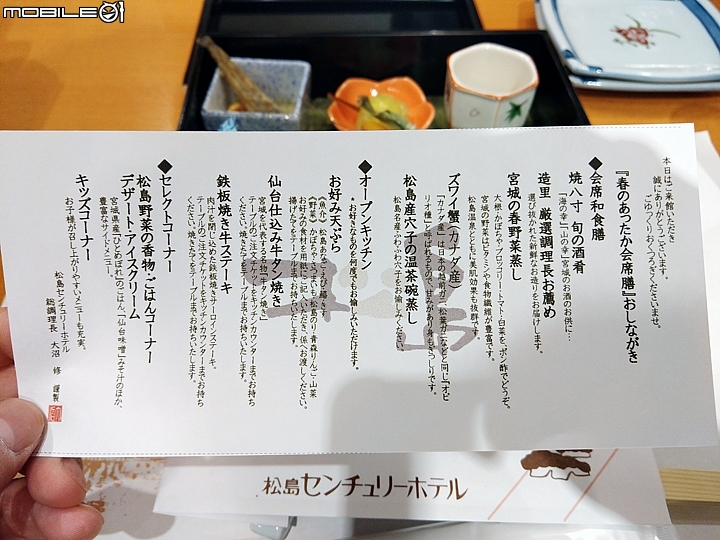 MOBILE01
本日はご来館いただき
誠にありがとうございます。
ごゆっくりおくつろぎくださいませ。
『春のあったか会席膳』おしながき
◆会席和食膳
焼八寸 旬の酒肴
「海の幸」「山の幸」宮城のお酒のお供に…
造里 厳選調理長お薦め
選び抜かれた新鮮なお造りをお届けします。
宮城の春野菜蒸し
大根・かぼちゃ・ブロッコリー・トマト・白菜を、ポン酢でどうぞ。
宮城の野菜はビタミンや食物繊維が豊富です。
松島温泉とともに美肌効果も抜群です。
ズワイ蟹(カナダ産)
「カナダ産」は日本の越前ガニ・松葉ガニなどと同じ「オピ
リオ種」と呼ばれるもので、甘みがあり身もぎっしりです。
松島産穴子の温茶碗蒸し
松島名産ふわふわ穴子をお愉しみください。
◆オープンキッチン
*お好きなものを何度でもお愉しみいただけます。
お好み天ぷら
(魚介)松島あなご・えび・鱚・いか
(野菜)かぼちゃ・さつまいも・松島のり・青森りんご・山菜
お好みの食材を用紙にご記入いただき、係へお渡しください。
揚げたてをテーブルまでお持ちいたします。
仙台仕込み牛タン焼き
宮城を代表する名物「牛タン焼き」
テーブルのご注文チケットをキッチンカウンターまでお持ち
ください。焼きたてをテーブルまでお持ちいたします。
鉄板焼き牛ステーキ
肉汁を閉じ込めた鉄板焼きサーロインステーキ。
テーブルのご注文チケットをキッチンカウンターまでお持ち
ください。焼きたてをテーブルまでお持ちいたします。
◆セレクトコーナー
松島野菜の香物・ごはんコーナー
デザート・アイスクリーム
宮城県産「ひとめぼれ」のごはん、「仙台味噌」みそ汁のほか、
豊富なサイドメニュー。
キッズコーナー
お子様がお召し上がりやすいメニューも充実。
松島センチュリーホテル
総調理長 大沼 修 謹製
松島センチュリーホテル